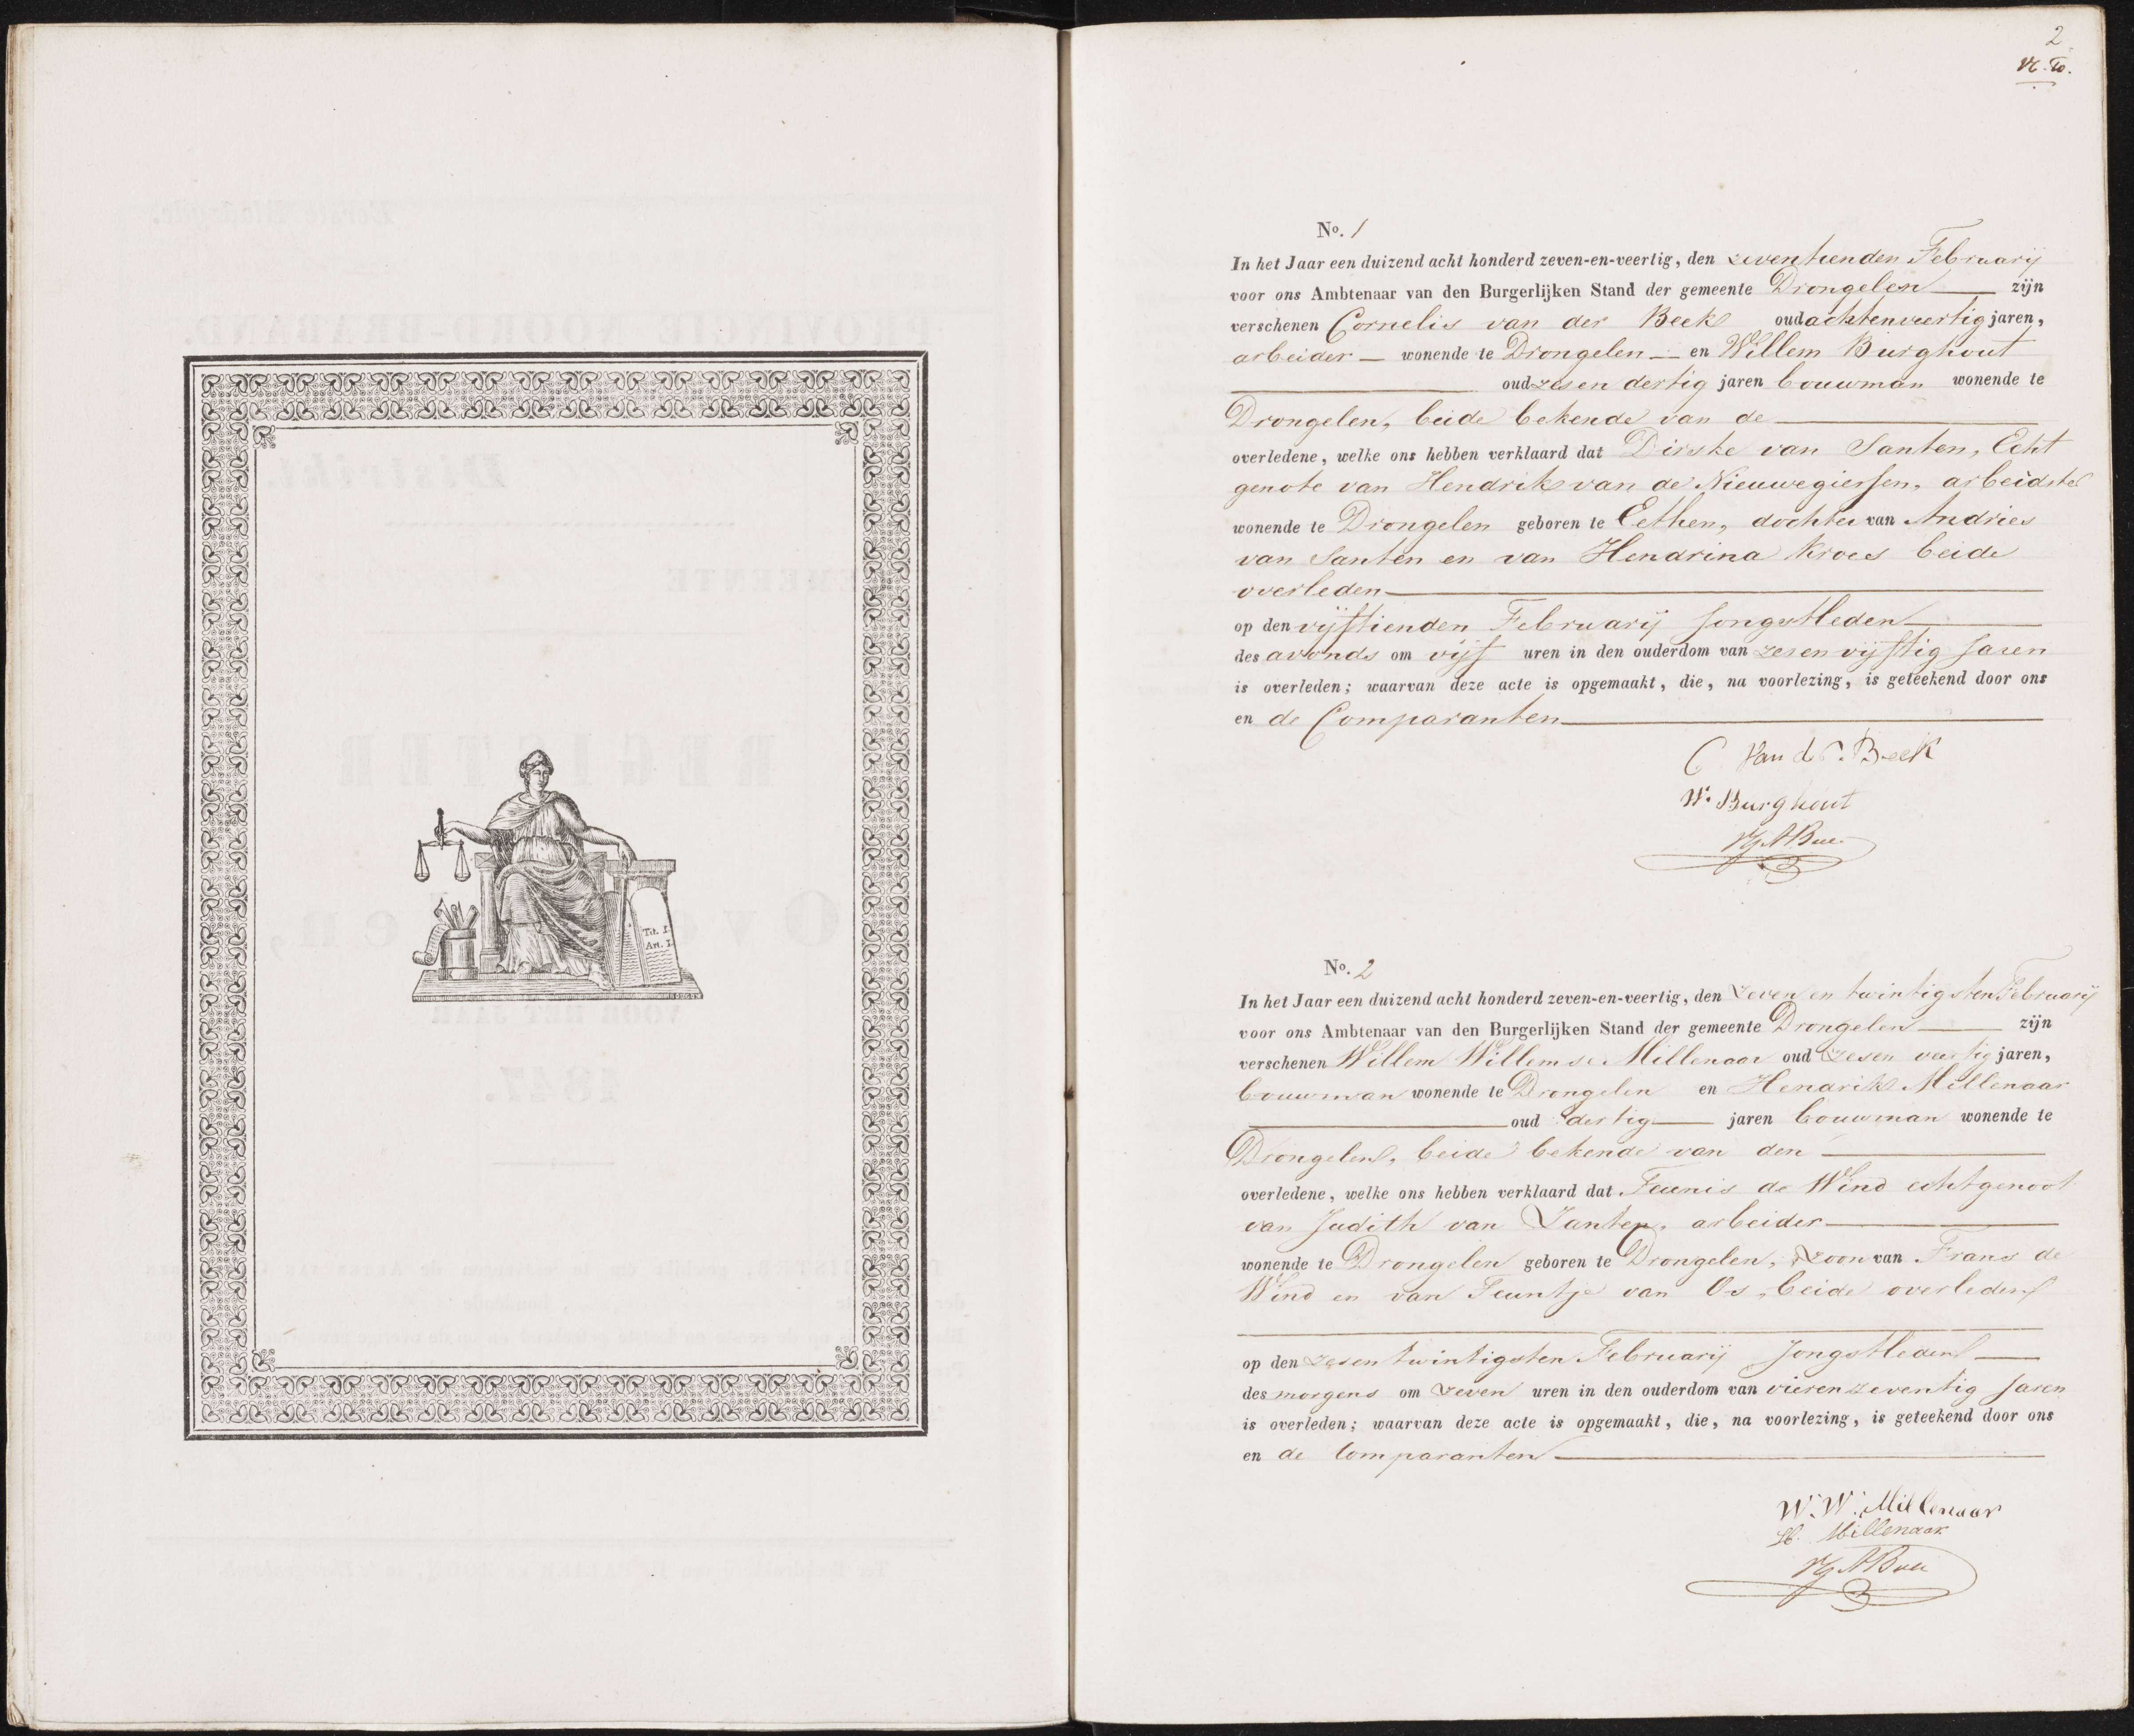 Tit. I.
Art. I.
2
No. 1
In het Jaar een duizend acht honderd zeven-en-veertig, den zeventienden Februarij
voor ons Ambtenaar van den Burgerlijken Stand der gemeente Drongelen zijn
verschenen Cornelis van der Beek oud achtenveertig jaren,
arbeider wonende te Drongelen en Willem Burghout
oud zesendertig jaren bouwman wonende te
Drongelen, beide bekende van de
overledene, welke ons hebben verklaard dat Dirske van Santen, Echt
genote van Hendrik van de Nieuwegiessen, arbeidster
wonende te Drongelen geboren te Eethen, dochter van Andries
van Santen en van Hendrina Kroes beide
overleden
op den vijftienden Februarij Jongstleden
des avonds om vijf uren in den ouderdom van zesenvijftig Jaren
is overleden; waarvan deze acte is opgemaakt, die, na voorlezing, is geteekend door ons
en de Comparanten
C Van der Beek
W. Burghout
No. 2
In het Jaar een duizend acht honderd zeven-en-veertig, den Zevenentwintigsten Februarij
voor ons Ambtenaar van den Burgerlijken Stand der gemeente Drongelen zijn
verschenen Willem Willemse Millenaar oud Zesenveertig jaren,
bouwman wonende te Drongelen en Hendrik Millenaar
oud dertig jaren bouwman wonende te
Drongelen, beide bekende van den
overledene, welke ons hebben verklaard dat Teunis de Wind echtgenoot
van Judith van Zanten, arbeider
wonende te Drongelen geboren te Drongelen, Zoon van Frans de
Wind en van Teuntje van Os, beide overleden
op den zesentwintigsten Februarij Jongstleden
des morgens om Zeven uren in den ouderdom van vierenzeventig Jaren
is overleden; waarvan deze acte is opgemaakt, die, na voorlezing, is geteekend door ons
en de Comparanten
W. W. Millenaar
H. Millenaar